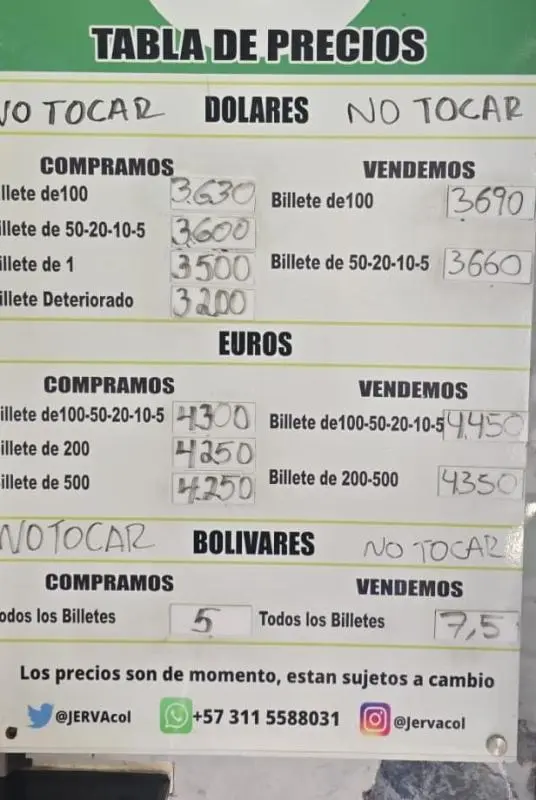 TABLA DE PRECIOS
NO TOCAR DOLARES NO TOCAR
COMPRAMOS VENDEMOS
illete de100 3.630 Billete de100 3690
illete de 50-20-10-5 3600
illete de 1 3500 Billete de 50-20-10-5 3660
illete Deteriorado 3200
EUROS
COMPRAMOS VENDEMOS
illete de100-50-20-10-5 4300 Billete de100-50-20-10-5 4.450
illete de 200 4250
illete de 500 4.250 Billete de 200-500 4350
NO TOCAR BOLIVARES NO TOCAR
COMPRAMOS VENDEMOS
odos los Billetes 5 Todos los Billetes 7,5
Los precios son de momento, estan sujetos a cambio
@JERVAcol +57 311 5588031 @Jervacol